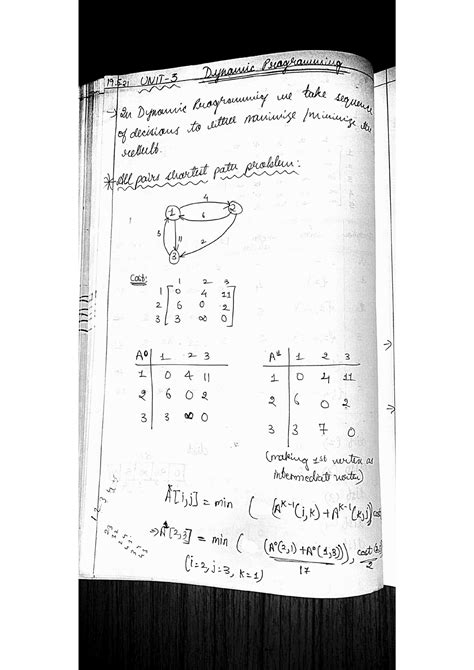 19.5.21 UNIT-3 Dynamic Programming
→ In Dynamic Programming we take sequence
of decisions to either maximize / minimize the
result.
* All pairs shortest path problem:
4
1 2
6
3 11 2
3
Cost:
1 2 3
1 0 4 11
2 6 0 2
3 3 ∞ 0
A⁰ 1 2 3
1 0 4 11
2 6 0 2
3 3 ∞ 0
A¹ 1 2 3
1 0 4 11
2 6 0 2
3 3 7 0
(making 1st vertex as
intermediate vertex)
A[i,j] = min ( (A^{k-1}(i,k) + A^{k-1}(k,j)), cost
⇒ A¹[2,3] = min ( (A⁰(2,1) + A⁰(1,3)), cost(2,3)
17 2
(i=2, j=3, k=1)